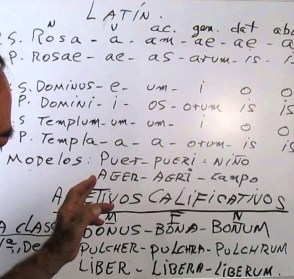 LATÍN.
N V ac. gen. dat abl
S. ROSA - a - am - ae - ae - a
P. ROSAE - ae - as - arum - is - is
S. DOMINUS - e - um - i o o
P. DOMINI - i - os - orum is is
S TEMPLUM - um - um - i o o
P. TEMPLA - a - a - orum is is
MODELOS: PUER - PUERI = NIÑO
AGER - AGRI - CAMPO
ADJETIVOS CALIFICATIVOS
M F N
A CLASE BONUS - BONA - BONUM
PULCHER - PULCHRA - PULCHRUM
LIBER - LIBERA - LIBERUM.